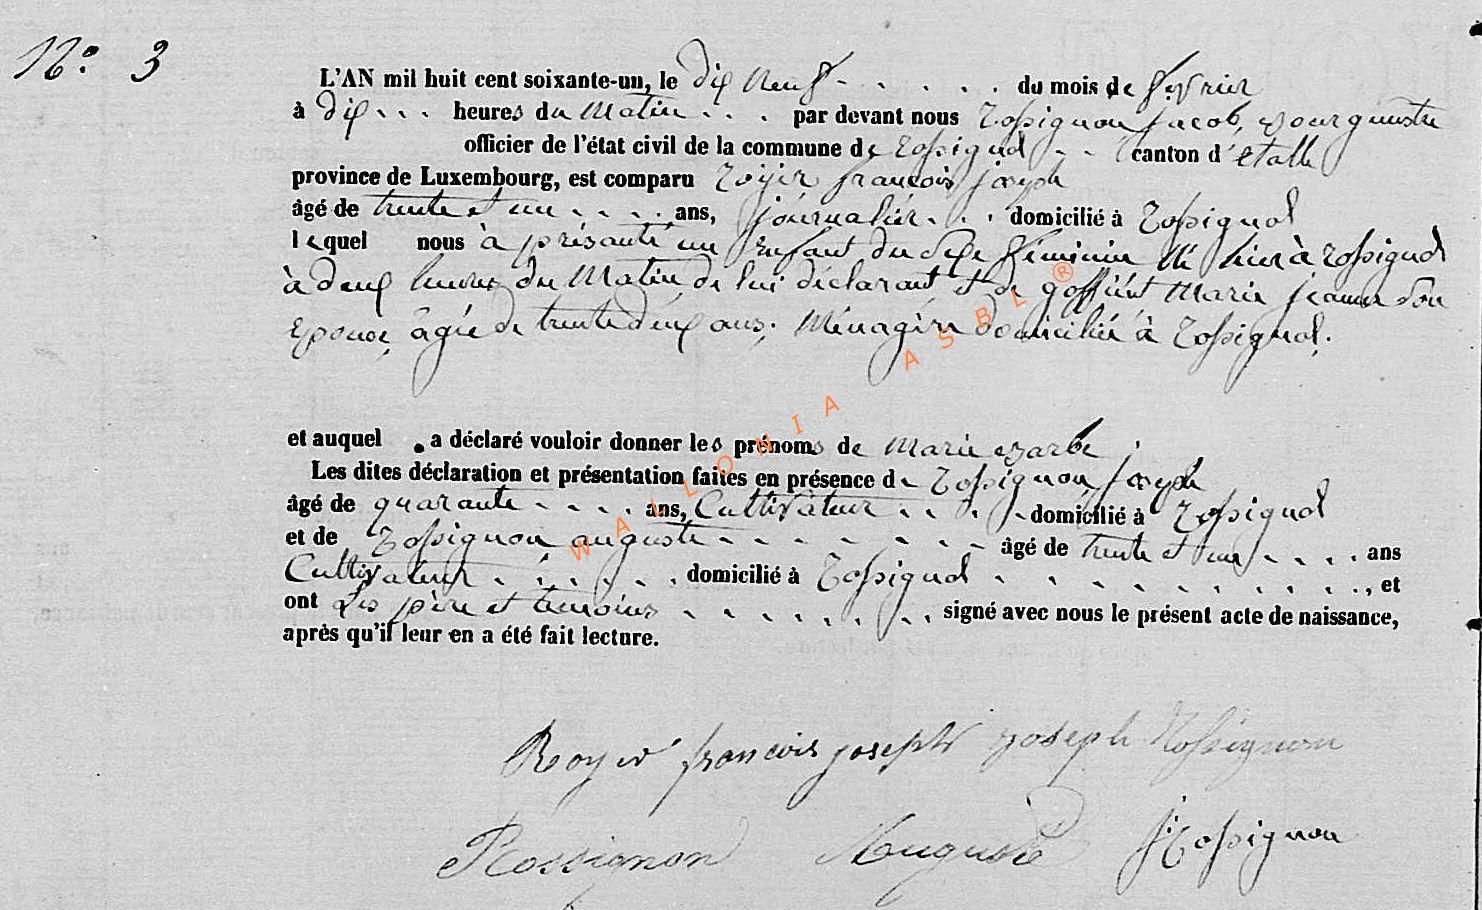 N° 3
L'AN mil huit cent soixante-un, le dix neuf - . . . . . du mois de fevrier
à dix . . . heures du Matin . . . par devant nous Rossignon Jacob, Bourgmestre
officier de l'état civil de la commune de Rossignol - - canton d'Etalle
province de Luxembourg, est comparu Royer françois joseph
âgé de trente et un . . . . ans, journalier . . . domicilié à Rossignol
lequel nous à présanté un Enfant du Sexe féminin né hier à Rossignol
à deux heures du Matin de lui déclarant et de goffinet Marie jeanne Son
Epouse, âgée de trente deux ans, Ménagère domiciliée à Rossignol.
et auquel a déclaré vouloir donner les prénoms de Marie Barbe.
Les dites déclaration et présentation faites en présence de Rossignon joseph
âgé de quarante - - . . ans, Cultivateur . . . . domicilié à Rossignol
et de Rossignon auguste - - - - - - - - âgé de trente et un . . . . ans
Cultivateur . . . . . . domicilié à Rossignol . . . . . . . . . ., et
ont Les père et temoins - - - - - - - . . signé avec nous le présent acte de naissance,
après qu'il leur en a été fait lecture.
Royer françois joseph joseph Rossignon
Rossignon Auguste J Rossignon
WALLONIA ASBL®